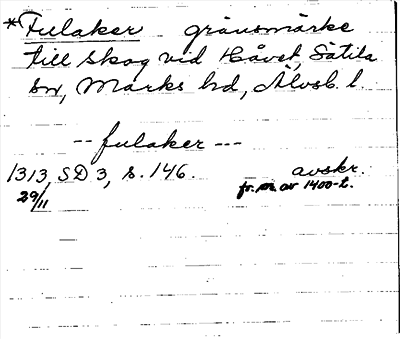 *Fulaker gränsmärke
till skog vid Håvet, Sätila
sn, Marks hd, Älvsb. l.
-- fulaker ---
1313 SD 3, s. 146. avskr.
29/11 fr. av 1400-t.